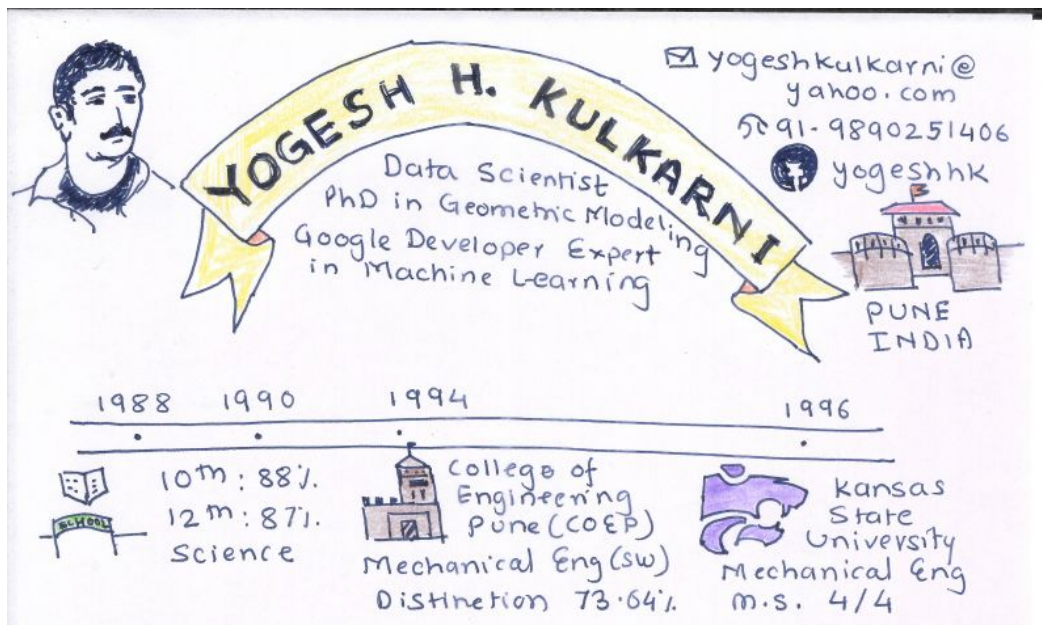 YOGESH H. KULKARNI
Data Scientist
PhD in Geometric Modeling
Google Developer Expert
in Machine Learning
yogeshkulkarni@
yahoo.com
91-9890251406
yogeshhk
PUNE
INDIA
1988 1990 1994 1996
SCHOOL
10th : 88%.
12th : 87%.
Science
College of
Engineering
Pune (COEP)
Mechanical Eng (SW)
Distinction 73.64%.
Kansas
State
University
Mechanical Eng
M.S. 4/4